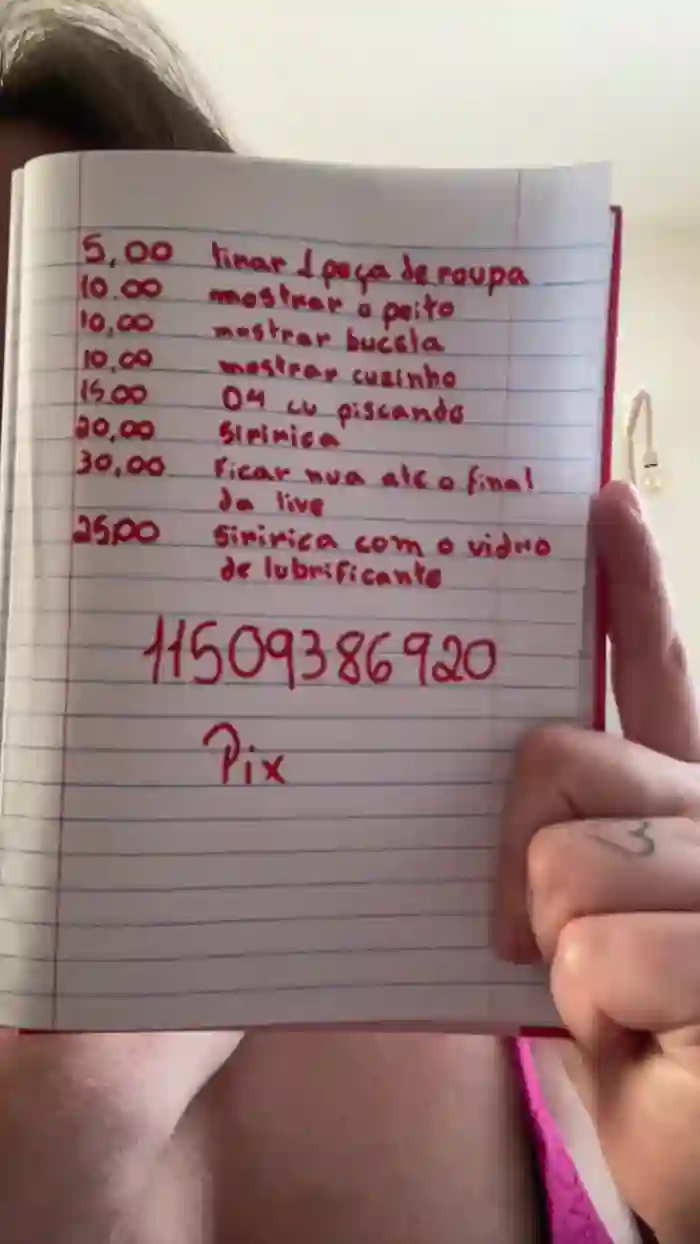 5,00 tirar 1 peça de roupa
10.00 mostrar o peito
10,00 mostrar buceta
10,00 mostrar cuzinho
15.00 04 cu piscando
20,00 siririca
30,00 ficar nua até o final
da live
25,00 siririca com o vidro
de lubrificante
11509386920
Pix